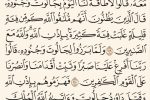 مَعَهُۥ قَالُوا۟ لَا طَاقَةَ لَنَا ٱلْيَوْمَ بِجَالُوتَ وَجُنُودِهِۦ
قَالَ ٱلَّذِينَ يَظُنُّونَ أَنَّهُم مُّلَـٰقُوا۟ ٱللَّهِ كَم مِّن فِئَةٍ
قَلِيلَةٍ غَلَبَتْ فِئَةً كَثِيرَةًۢ بِإِذْنِ ٱللَّهِ وَٱللَّهُ مَعَ
ٱلصَّـٰبِرِينَ وَلَمَّا بَرَزُوا۟ لِجَالُوتَ وَجُنُودِهِۦ قَالُوا۟
رَبَّنَآ أَفْرِغْ عَلَيْنَا صَبْرًا وَثَبِّتْ أَقْدَامَنَا وَٱنصُرْنَا
عَلَى ٱلْقَوْمِ ٱلْكَـٰفِرِينَ فَهَزَمُوهُم بِإِذْنِ ٱللَّهِ